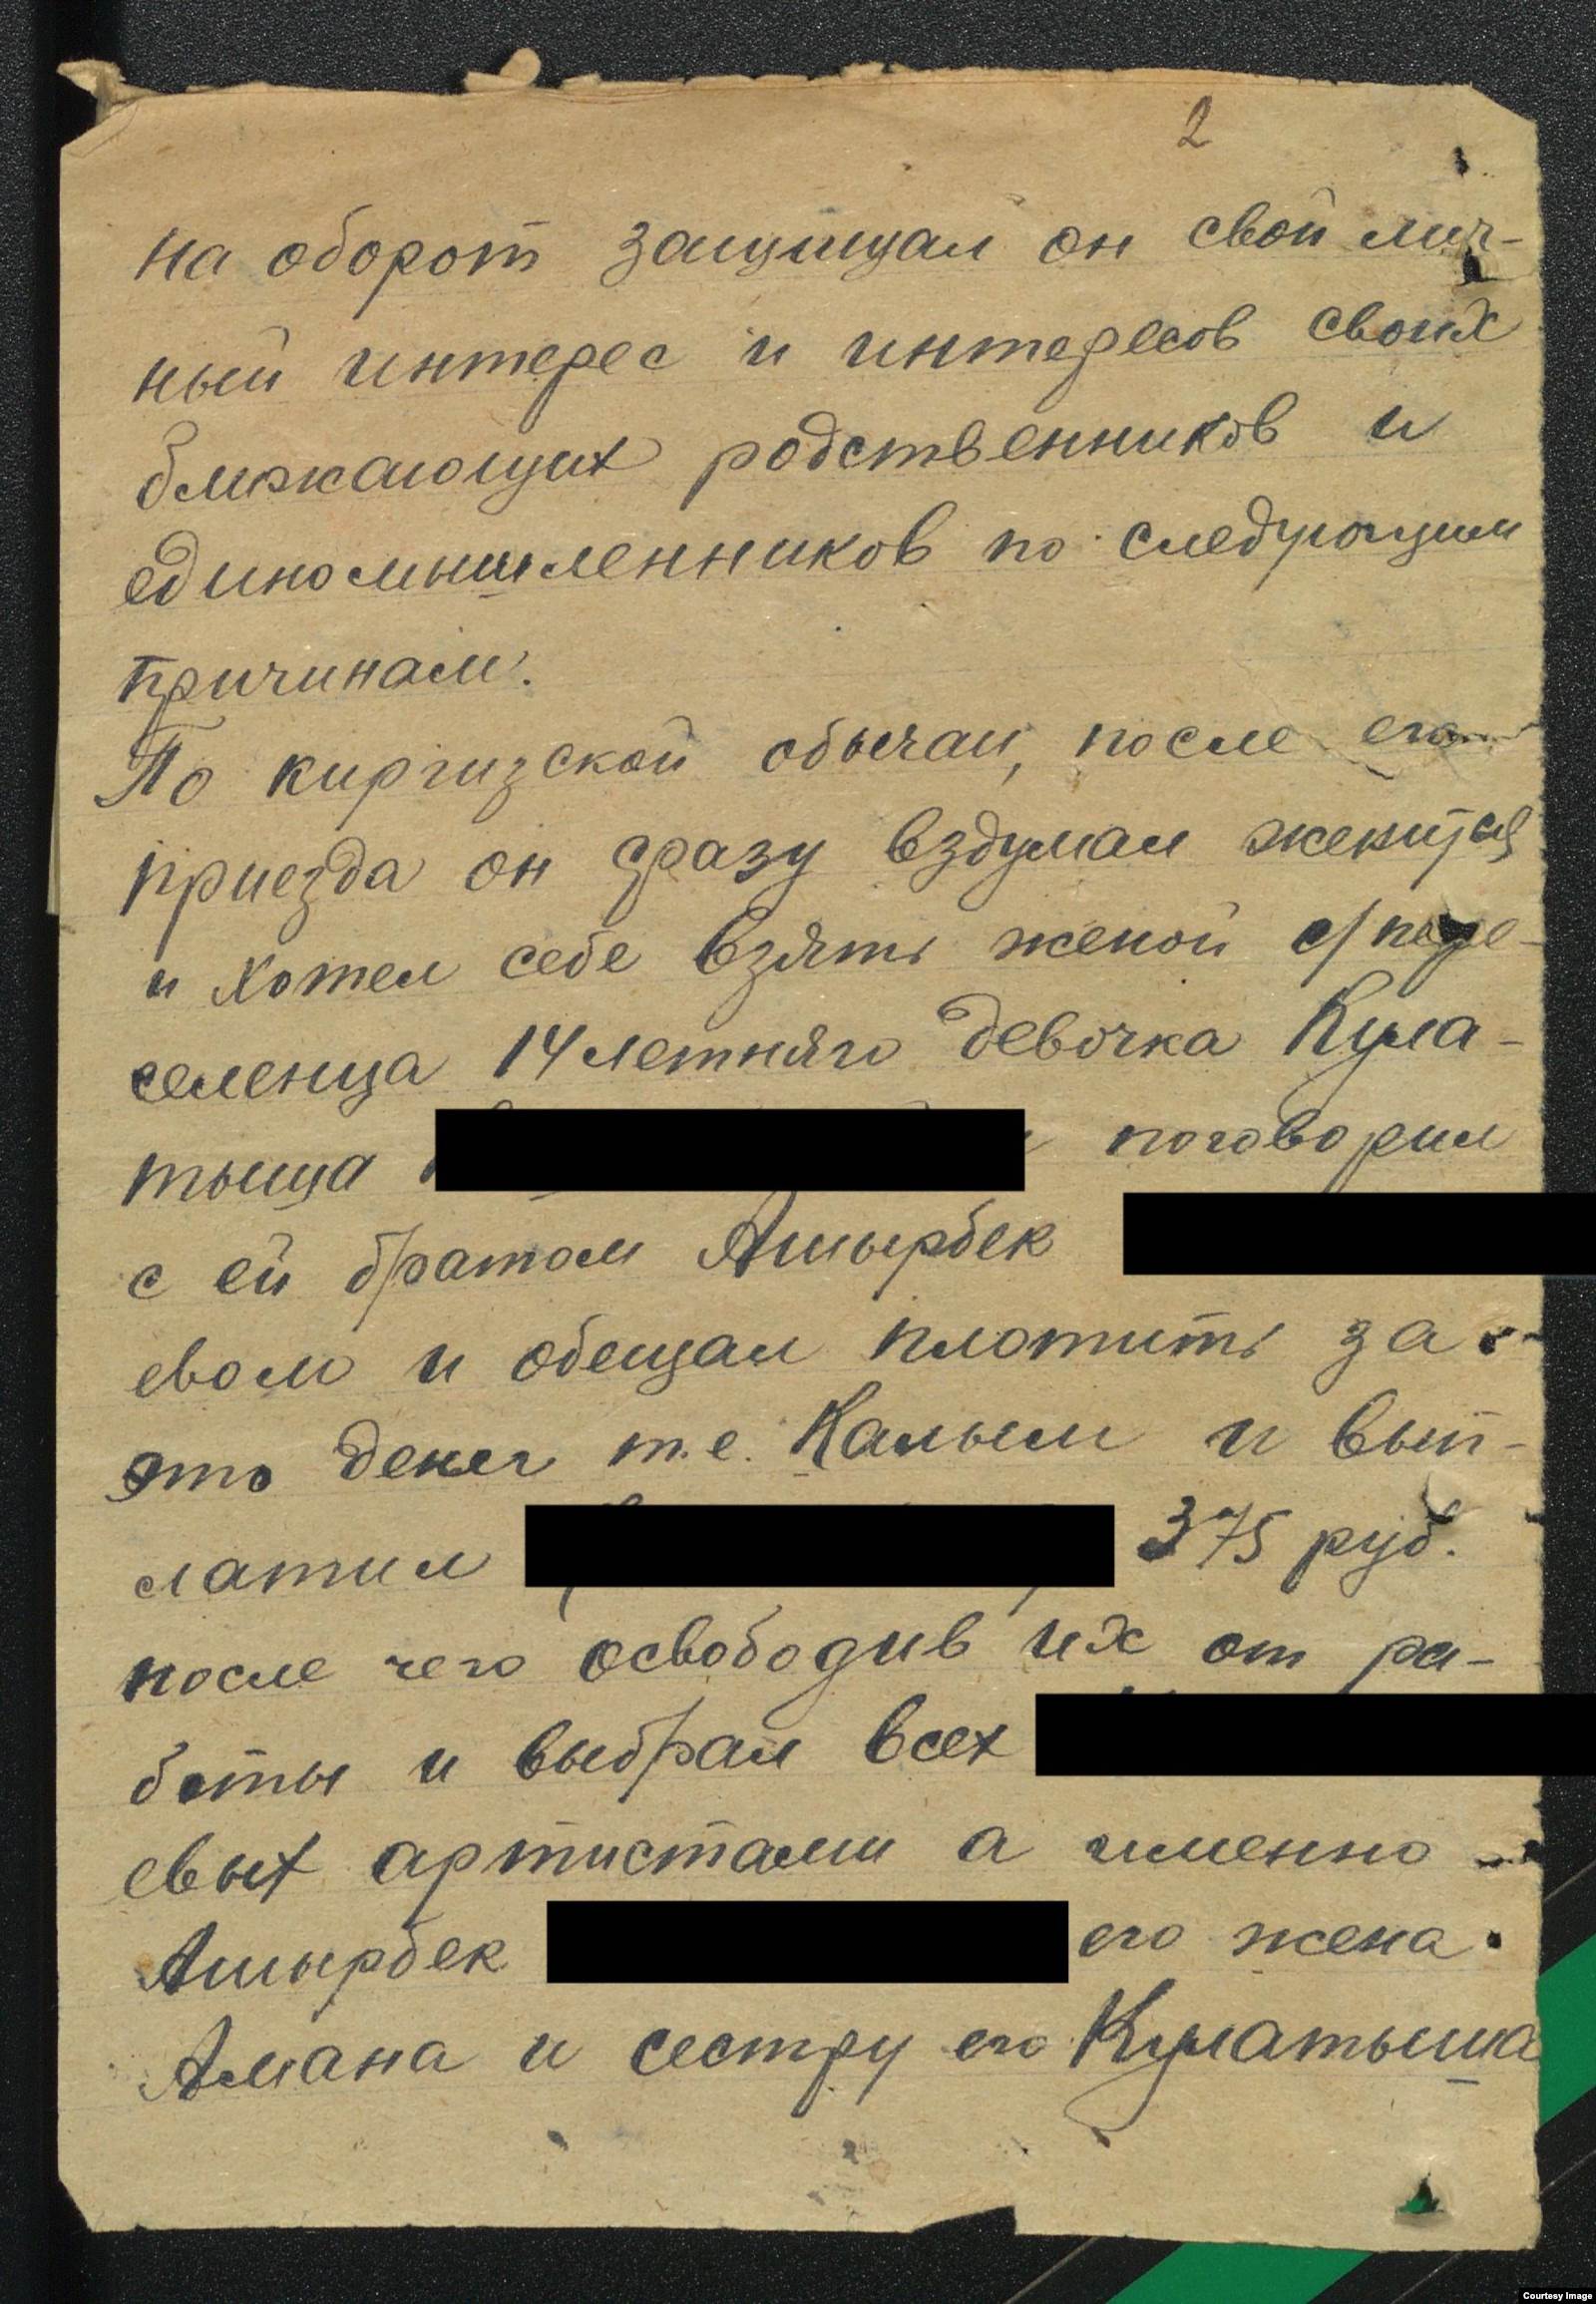 2
на оборот защищал он свой лич-
ный интерес и интересов своих
ближающих родственников и
единомышленников по следующим
причинам.
По киргизской обычаи, после его
приезда он сразу вздумал женится
и хотел себе взять женой с/пере-
селенца 14 летняго девочка Кула-
тыша поговорил
с ей братом Ашырбек
евом и обещал плотить за
это денег т.е. Калым и вып-
латил 375 руб.
после чего освободив их от ра-
боты и выбрал всех
евых артистами а именно
Ашырбек его жена
Амана и сестру его Кулатыша
Courtesy Image